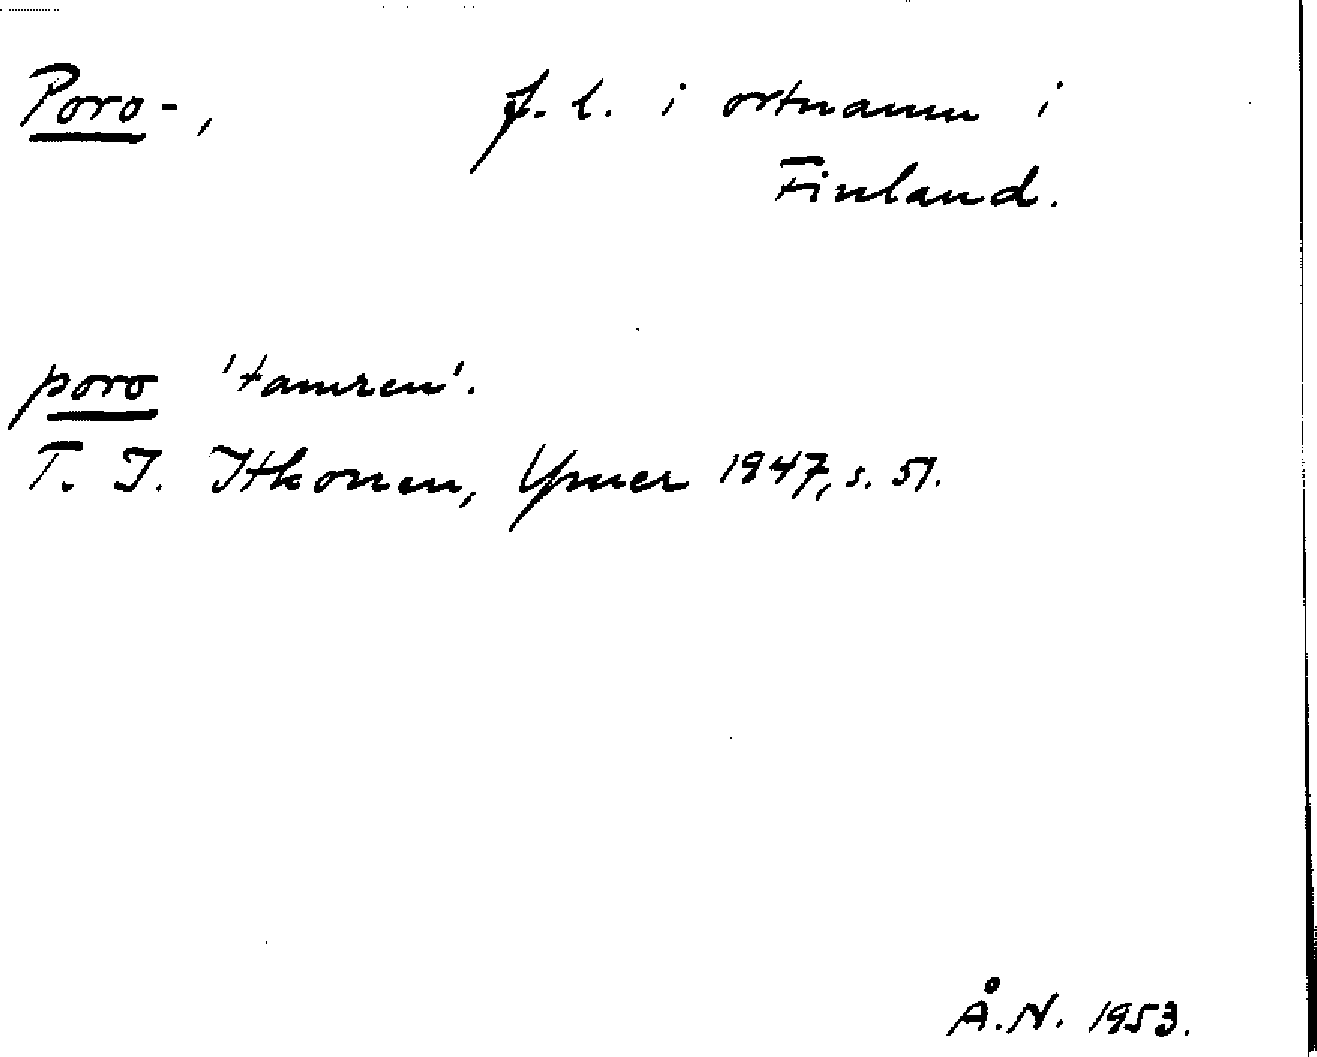 Poro-, f. l. i ortnamn i
Finland.
poro 'tamren'.
T. I. Itkonen, Ymer 1947, s. 51.
Å.N. 1953.